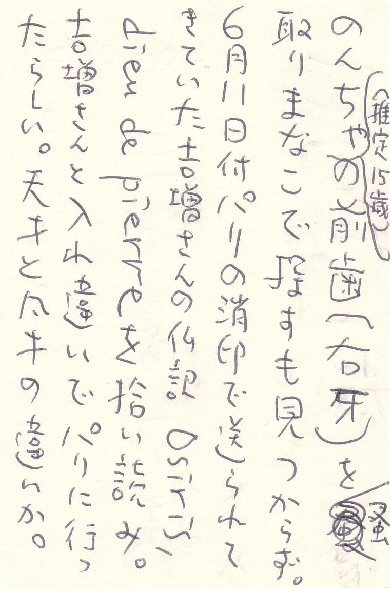 (推定15歳)
のんちゃの前歯(右牙)を蚤
取りまなこで探すも見つからず。
6月11日付パリの消印で送られて
きていた吉増さんの仏訳 Osiris,
dieu de pierreを拾い読み。
吉増さんと入れ違いでパリに行っ
たらしい。天才と凡才の違いか。